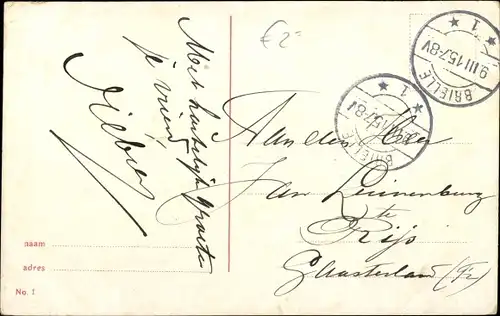 €2=
Met hartelijke groeten
je vriend
BRIELLE
9.III.15.7-8V
1
BRIELLE
1
Aan den Heer
Jan
te
Rijs
Gaasterland (Fr)
naam
adres
No. 1